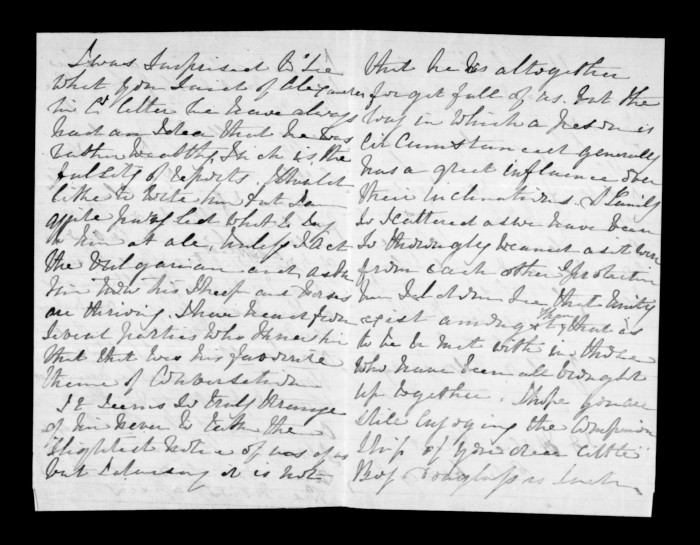 I was surprised to see
what you said of Alexander
in C. letter we have always
had an Idea that he was
rather wealthy, Such is the
falsity of reports, I should
like to write him but I am
quite puzzled what to say
to him at all, Unless I act
the Vulgarian and ask
him how his Sheep and horses
are thriving. I have heard from
several parties who knew him
that that was his favourite
theme of Conversation
It seems so truly strange
of him never to take the
slightest notice of us
but I daresay it is not
that he is altogether
forgetfull of us. but the
way in which a person is
circumstanced generally
has a great influence over
their inclinations. A family
so scattered as we have been
so thoroughly weaned as it were
from each other
seldom see that Unity
exist amongst them, that is
to be met with in those
who have been all brought
up together. I hope you are
still enjoying the Companion
ship of your dear little
Boy Douglass is such